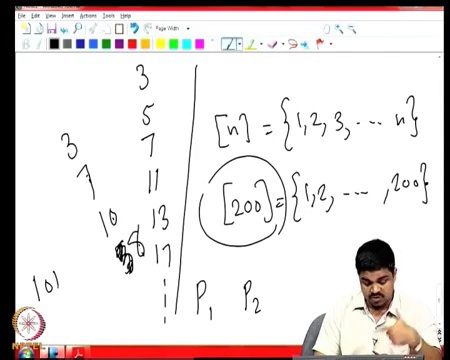 File Edit View Insert Actions Tools Help
Page Width
3
5
7
11
13
17
3
7
10
8
101
[n] = {1, 2, 3, ... n}
[200] = {1, 2, ..., 200}
P1 P2